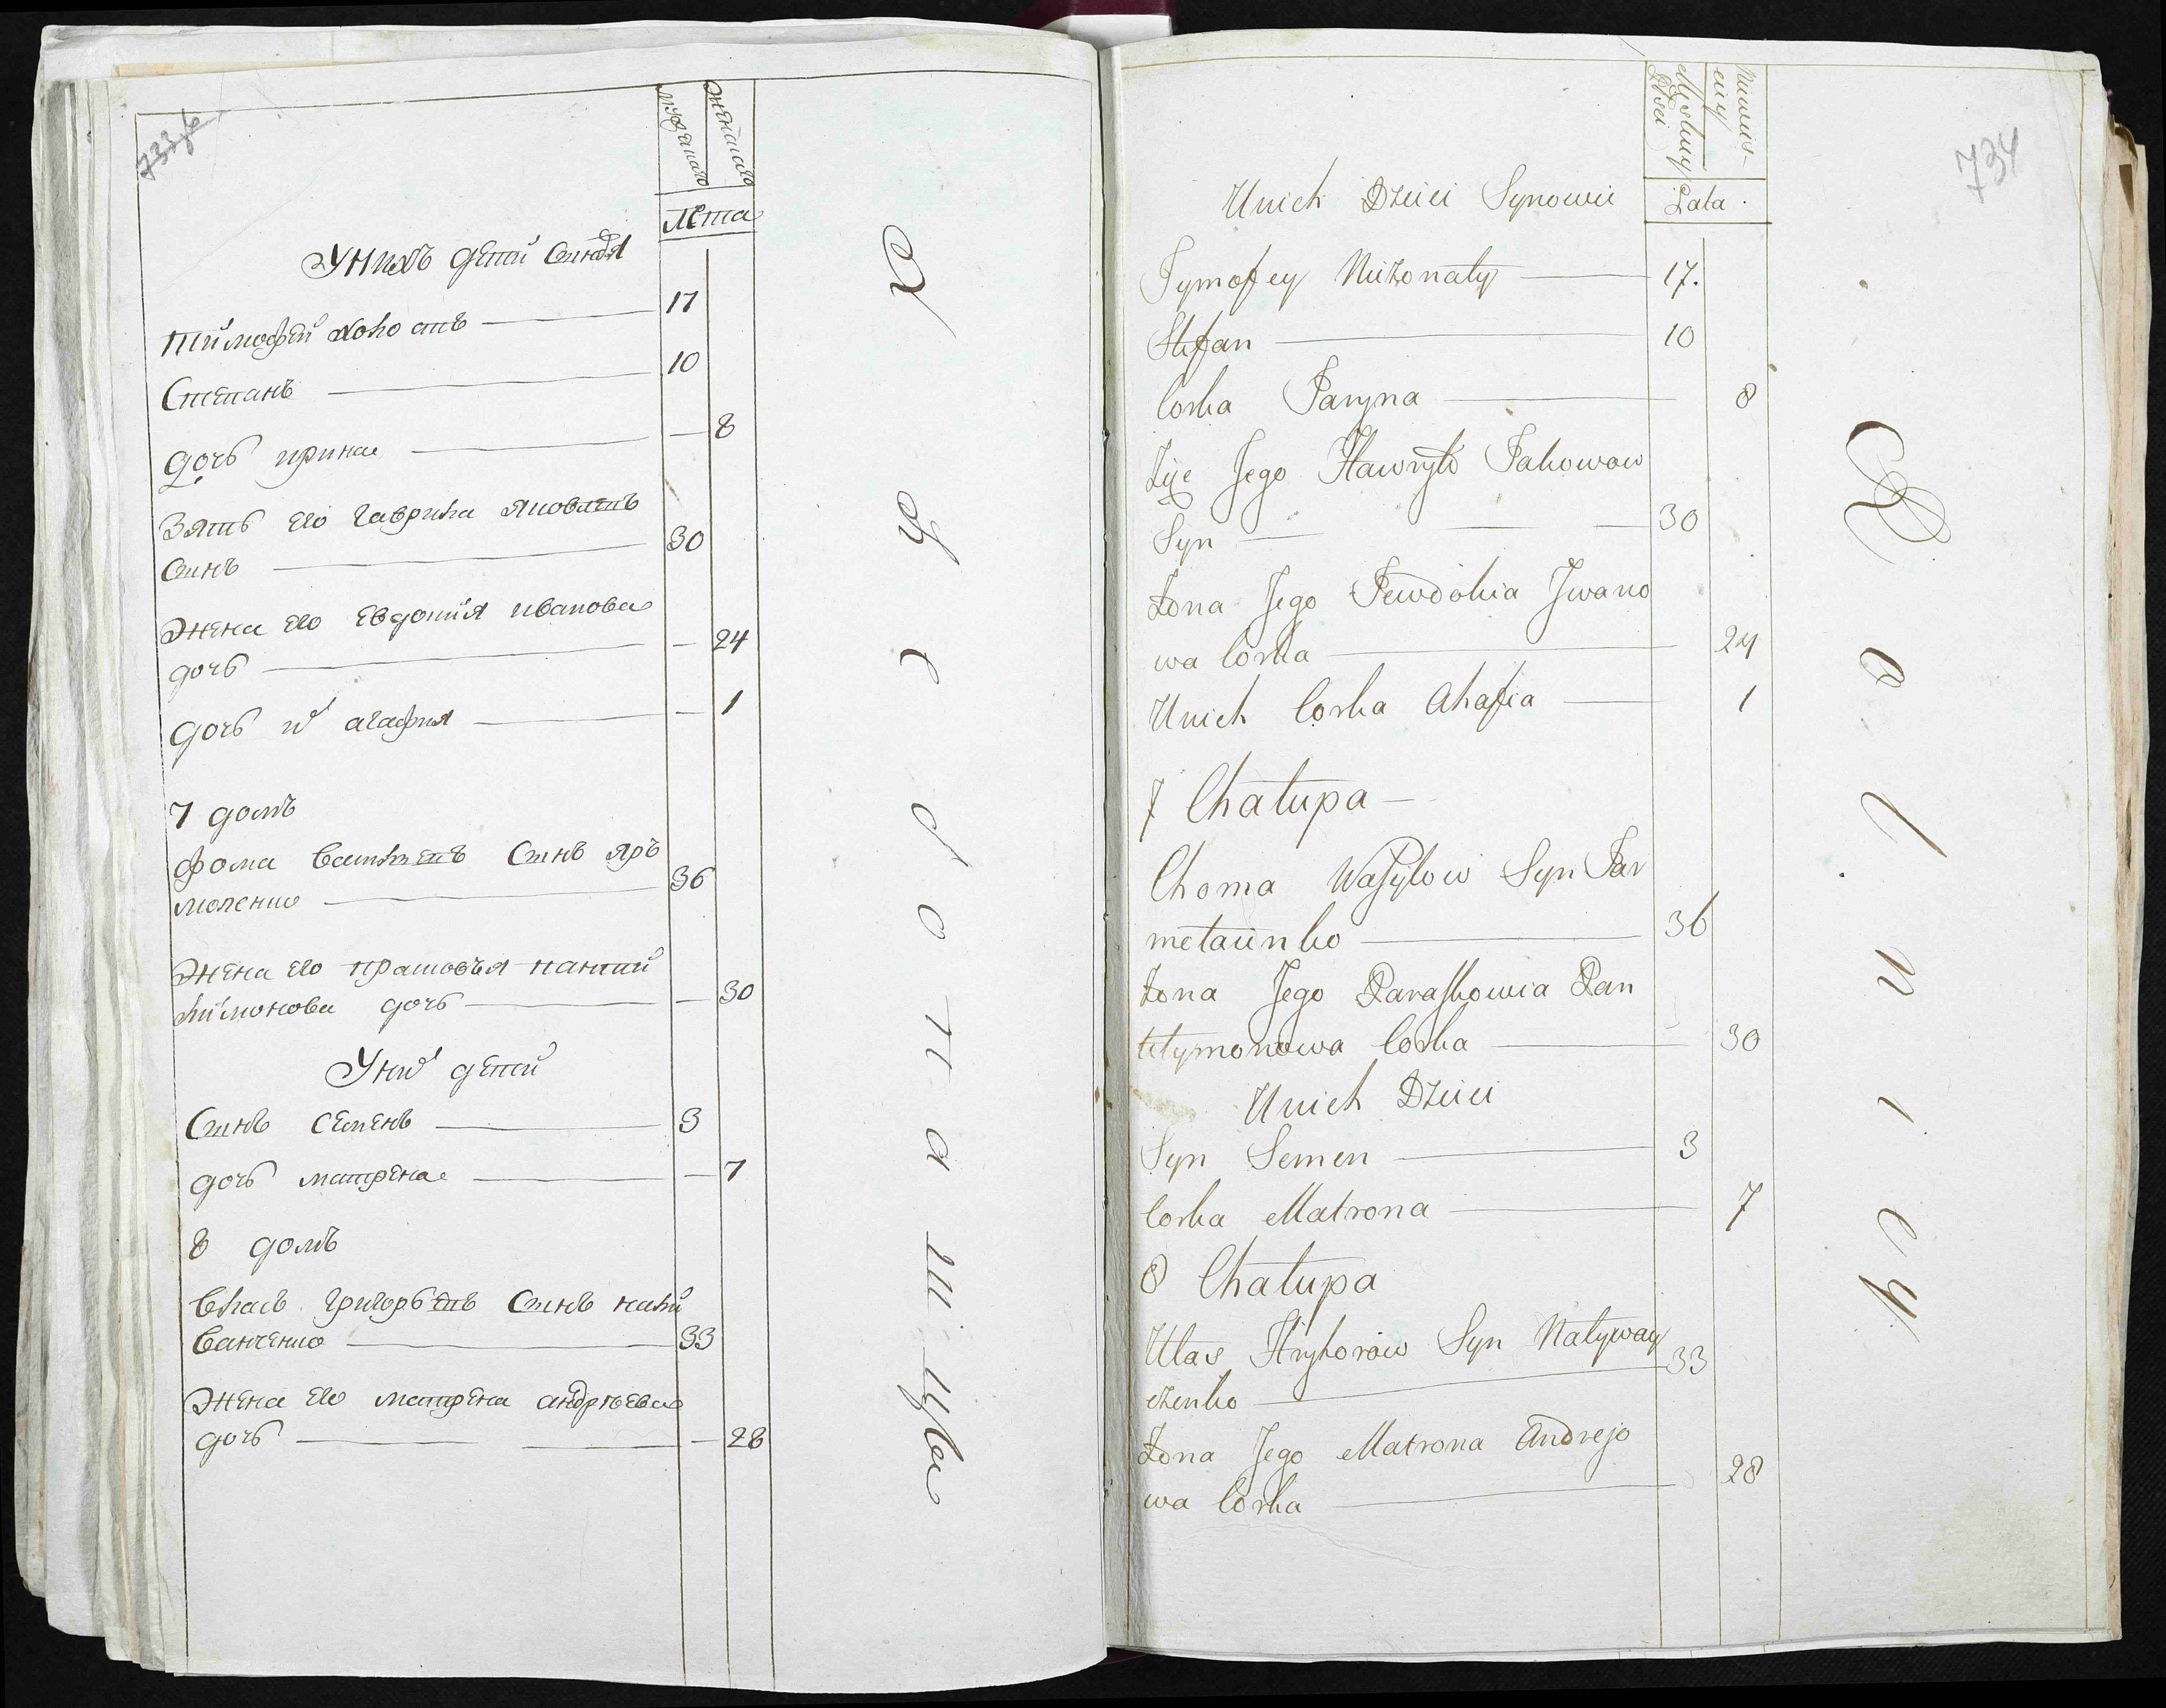 733об
мужскаго
женскаго
Лета
У нихъ дети синовя
тимофей холостъ — 17
Степанъ — 10
дочь ирина — 8
Зять его гаврила яковлевъ
синъ — 30
жена его евдокия иванова
дочь — 24
дочь их агафия — 1
7 домъ
фома василевъ Синъ яръ
моленко — 36
жена его прасковья панти
лимонова дочь — 30
У них дети
Синъ семенъ — 3
дочь матрена — 7
8 домъ
власъ григорьевъ Синъ нали
ванченко — 33
жена его матрена андреева
дочь — 28
734
Męskiey
Płci
Niewieś-
ciey
Lata
Unich Dzieci Synowie
Tymofey Nieżonaty — 17.
Stefan — 10
Corka Jaryna — 8
Zięć Jego Hawryło Jakowow
Syn — 30
Żona Jego Jewdokia Jwano
wa Corka — 24
Unich Corka Ahafia — 1
7 Chałupa —
Choma Wasylow Syn Jar
mełaienko — 36
Żona Jego Paraskowia Pan
telymonowa Corka — 30
Unich Dzieci
Syn Semen — 3
Corka Matrona — 7
8 Chałupa
Ułas Hryhorow Syn Nalyway
czenko — 33
Żona Jego Matrona Andrejo
wa Corka — 28